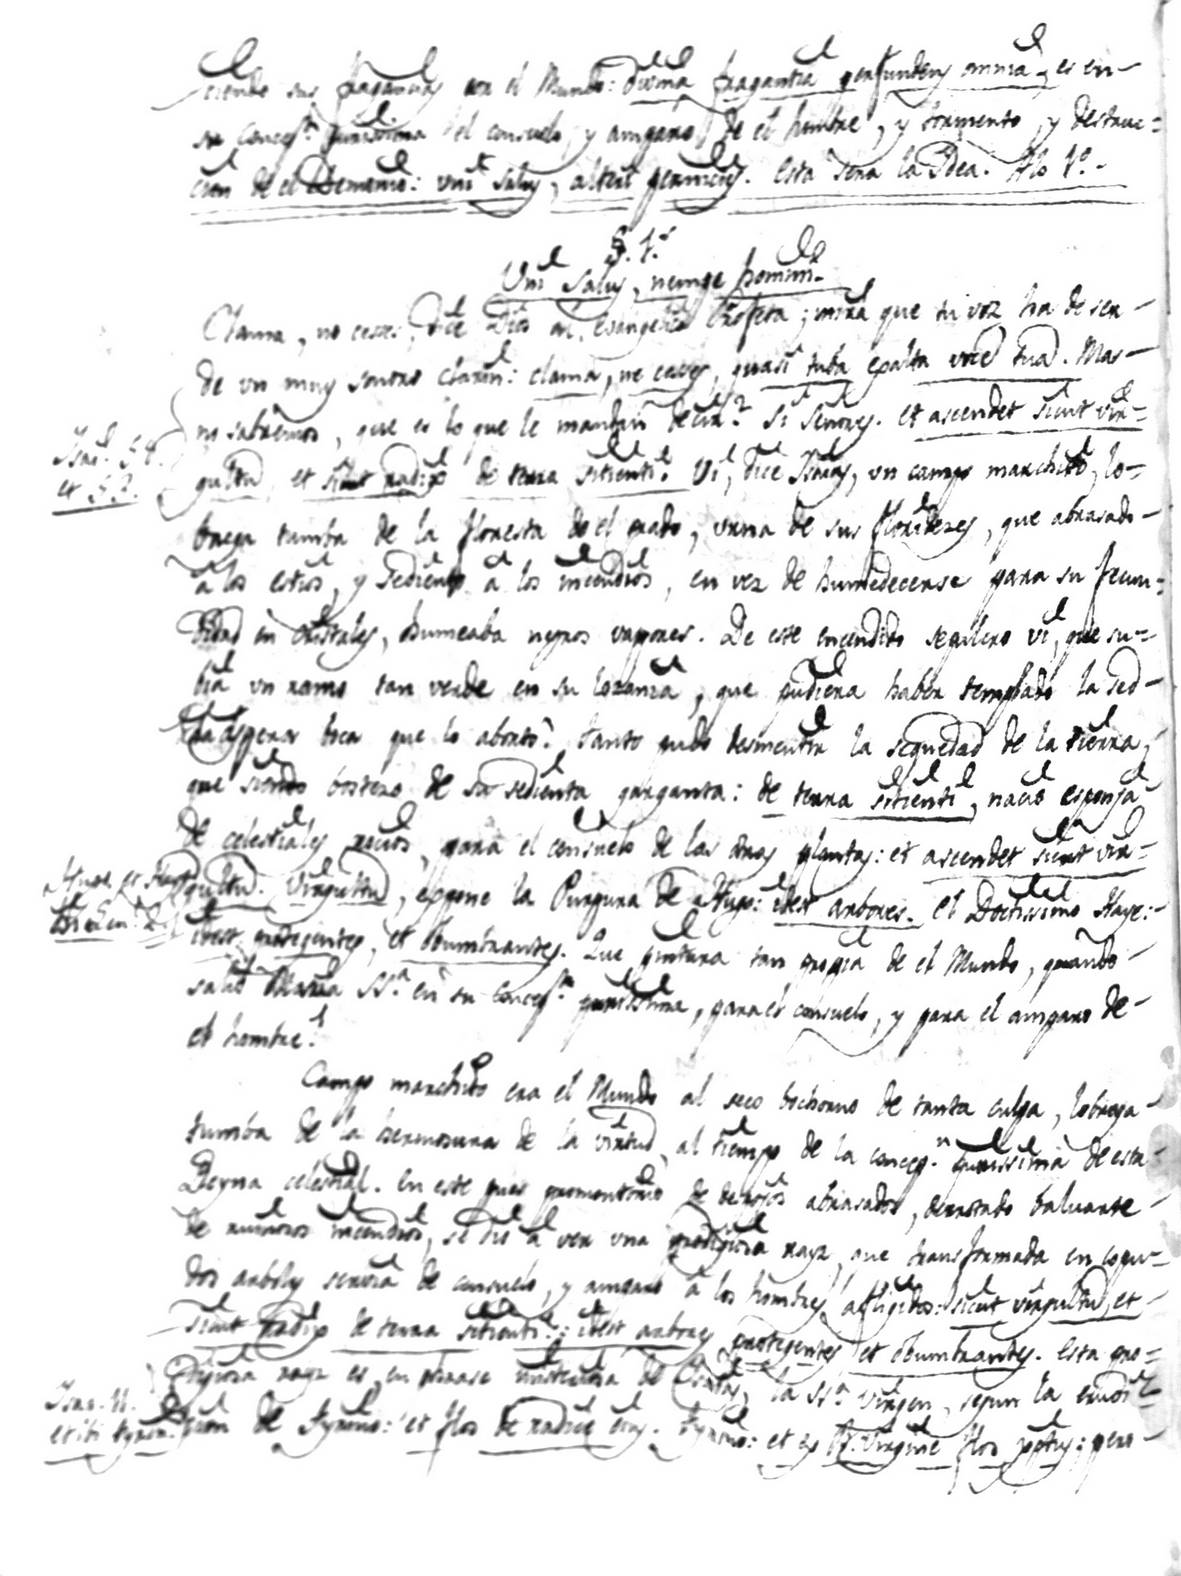 ciendo sus fragancias por el Mundo: divina fragantia perfundens omnia, es en-
su Concepⁿ purissima el consuelo, y amparo de el hombre, y tormento, y destruc-
cion de el Demonio: uni salus, alteri pernicies. Esta sera la Idea. A lo 1º.-
§. 1.º
Uni salus, nempe homini.
Clama, no ceses, dice Dios al evangelico Profeta; mira que tu voz ha de ser-
de un muy sonoro clarin: clama, ne cesses, quasi tuba exalta vocē tuā. Mas-
no sabremos, que es lo que le mandan decir? Si Señores. et ascendet sicut vir-
Isai. 58.
et 53.
gultū, et sicut radix de terra sitienti. Vi, dice Isaias, un campo marchito, lo-
brega tumba de la floresta de el prado, urna de sus florideses, que abrasado-
à los estios, y sediento à los incendios, en vez de humedecerse para su fecun-
didad en cristales, humeaba negros vapores. De este encendido sepulcro vi, que su-
bia un ramo tan verde en su lozania, que pudiera haber templado la sed-
la aspera boca que lo aborto. Tanto pudo desmentir la sequedad de la tierra,
que siendo bostezo de su sedienta garganta: de terra sitienti, nacio esponja
de celestiales rocios, para el consuelo de las otras plantas: et ascendet sicut vir-
Hug. et Haye
gultū. Virgultū, expone la Purpura de Hugo: idest arbores. el Doctissimo Haye:-
idest protegentes, et obumbrantes. Que pintura tan propia de el Mundo, quando-
salio Maria SSª en su Concepⁿ purissima, para el consuelo, y para el amparo de-
el hombre!
Campo marchito era el Mundo al seco bochorno de tanta culpa, lobrega-
tumba de la hermosura de la virtud, al tiempo de la concepⁿ purissima de esta-
Reyna celestial. En este pues promontorio de despojos abrasados, derrotado baluarte-
de ruinosos incendios, se dio à ver una prodigiosa rayz, que transformada en copu-
dos arboles servia de consuelo, y amparo à los hombres afligidos: sicut virgultū, et-
sicut radix de terra sitienti: idest arbores protegentes et obumbrantes. Esta pro-
digiosa rayz es, en phrase misteriosa de Isaias, la SSª Virgen, segun la erudi-
Isai. 11.
et ibi Hyron.
cion de Hyronimo: et flos de radice eius. Hyronimo: et ex B. Virgine flos xptus; pero-